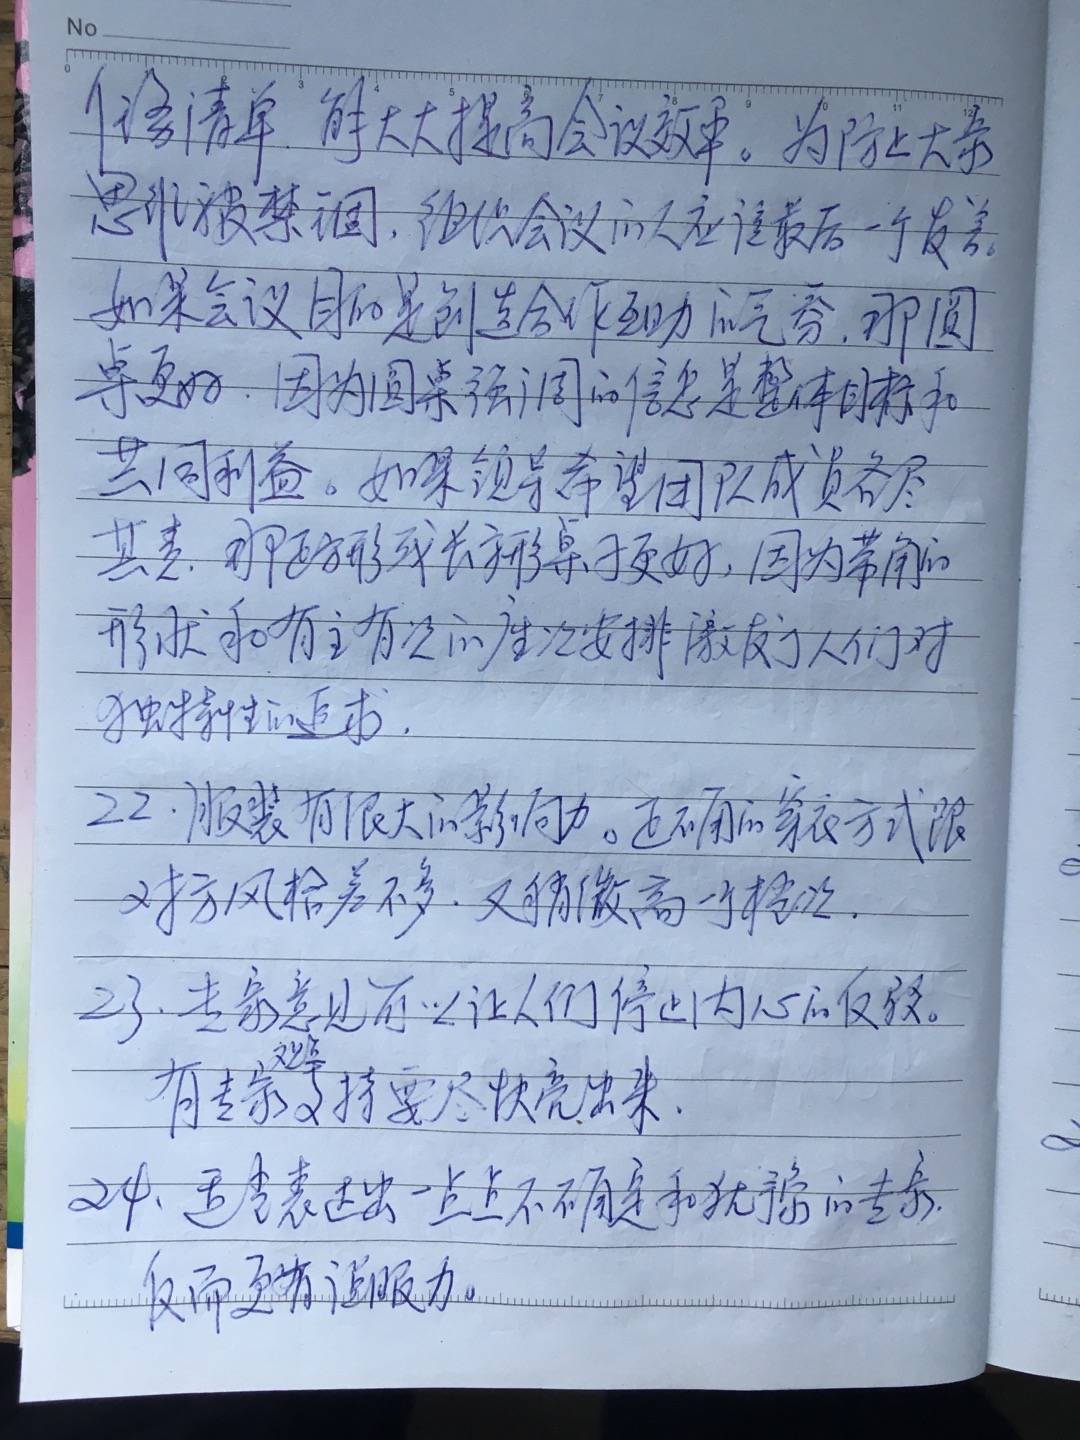 No
0 2 3 4 5 6 7 8 9 10 11 12
任务清单,能大大提高会议效率。为防止大家
思维被禁锢,组织会议的人应该最后一个发言。
如果会议目的是创造合作互助的气氛,那圆
桌更好,因为圆桌强调的信息是整体目标和
共同利益。如果领导希望团队成员各尽
其责,那正方形或长方形桌子更好,因为带角的
形状和有主有次的座次安排激发了人们对
独特性的追求.
22.服装有很大的影响力。正确的穿衣方式跟
对方风格差不多.又稍微高一个档次.
23.专家意见可以让人们停止内心的反驳。
观点
有专家支持要尽快亮出来.
24.适当表达出一点点不确定和犹豫的专家.
反而更有说服力。